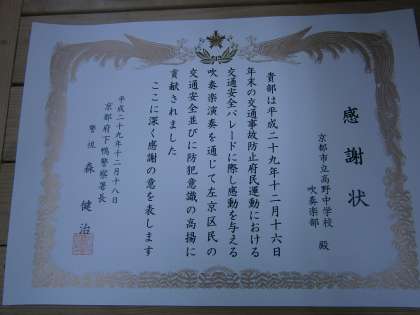 感謝状
京都市立高野中学校
吹奏楽部 殿
貴部は平成二十九年十二月十六日
年末の交通事故防止府民運動における
交通安全パレードに際し感動を与える
吹奏楽演奏を通じて左京区民の
交通安全並びに防犯意識の高揚に
貢献されました
ここに深く感謝の意を表します
平成二十九年十二月十八日
京都府下鴨警察署長
警視 森 健治